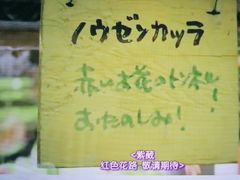 ノウゼンカツラ
赤いお花のトンネル!
おたのしみ!
<紫葳
红色花路 敬请期待>